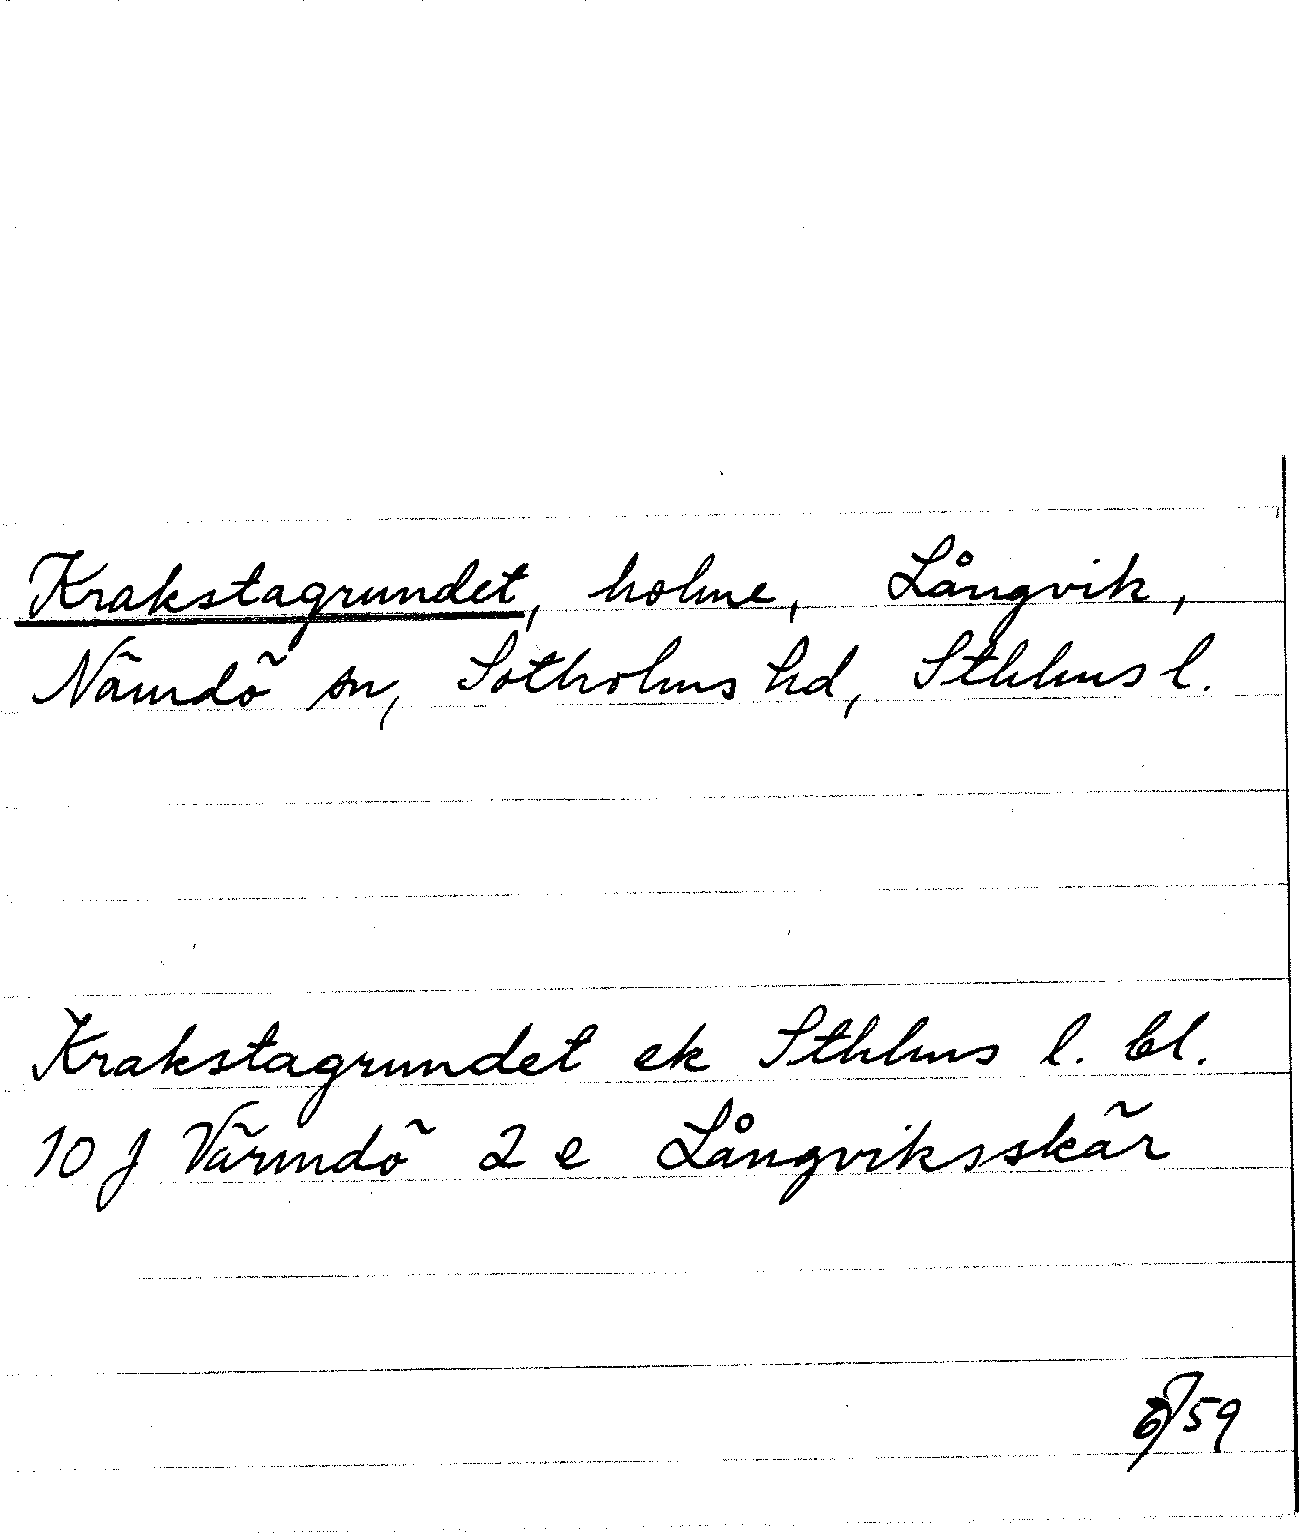 Krakstagrundet, holme, Långvik,
Nämdö sn, Sotholms hd, Sthlms l.
Krakstagrundet ek Sthlms l. bl.
10 J Värmdö 2 e Långviksskär
59